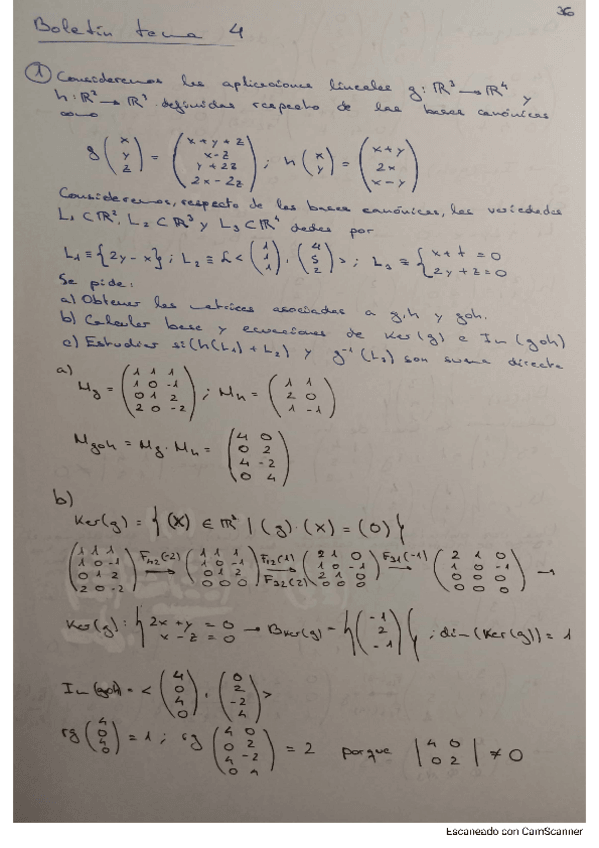 36
Boletín tema 4
① Consideremos las aplicaciones lineales g: ℝ³ → ℝ⁴ y
h: ℝ² → ℝ³ definidas respecto de las bases canónicas
como
g (x y z) = (x+y+z, x-z, y+2z, 2x-2z) ; h (x y) = (x+y, 2x, x-y)
Consideremos, respecto de las bases canónicas, las variedades
L₁ ⊂ ℝ², L₂ ⊂ ℝ³ y L₃ ⊂ ℝ⁴ dadas por
L₁ ≡ {2y-x} ; L₂ ≡ L < (1 1 1), (4 5 2) > ; L₃ ≡ { x+t=0, 2y+z=0
Se pide:
a) Obtener las matrices asociadas a g, h y goh.
b) Calcular base y ecuaciones de Ker(g) e Im(goh)
c) Estudiar si (h(L₁)+L₂) y g⁻¹(L₃) son suma directa
a)
Mg = (1 1 1, 1 0 -1, 0 1 2, 2 0 -2) ; Mh = (1 1, 2 0, 1 -1)
Mgoh = Mg · Mh = (4 0, 0 2, 4 -2, 0 4)
b)
Ker(g) = { (x) ∈ ℝ³ | (g)·(x) = (0) }
(1 1 1, 1 0 -1, 0 1 2, 2 0 -2) F₄₂(-2) → (1 1 1, 1 0 -1, 0 1 2, 0 0 0) F₁₂(1) F₃₂(2) → (2 1 0, 1 0 -1, 2 1 0, 0 0 0) F₃₁(-1) → (2 1 0, 1 0 -1, 0 0 0, 0 0 0) →
Ker(g): { 2x+y=0, x-z=0 → BKer(g) = { (-1 2 -1) } ; dim(Ker(g)) = 1
Im(goh) = < (4 0 4 0), (0 2 -2 4) >
rg (4 0 4 0) = 1 ; rg (4 0, 0 2, 4 -2, 0 4) = 2 porque |4 0, 0 2| ≠ 0
Escaneado con CamScanner